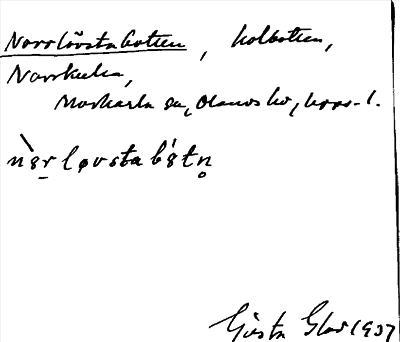 Norrlövstabotten, kolbotten,
Norrkulen,
Morkarla sn, Olands hd, Upps. l.
Gösta Glad 1937